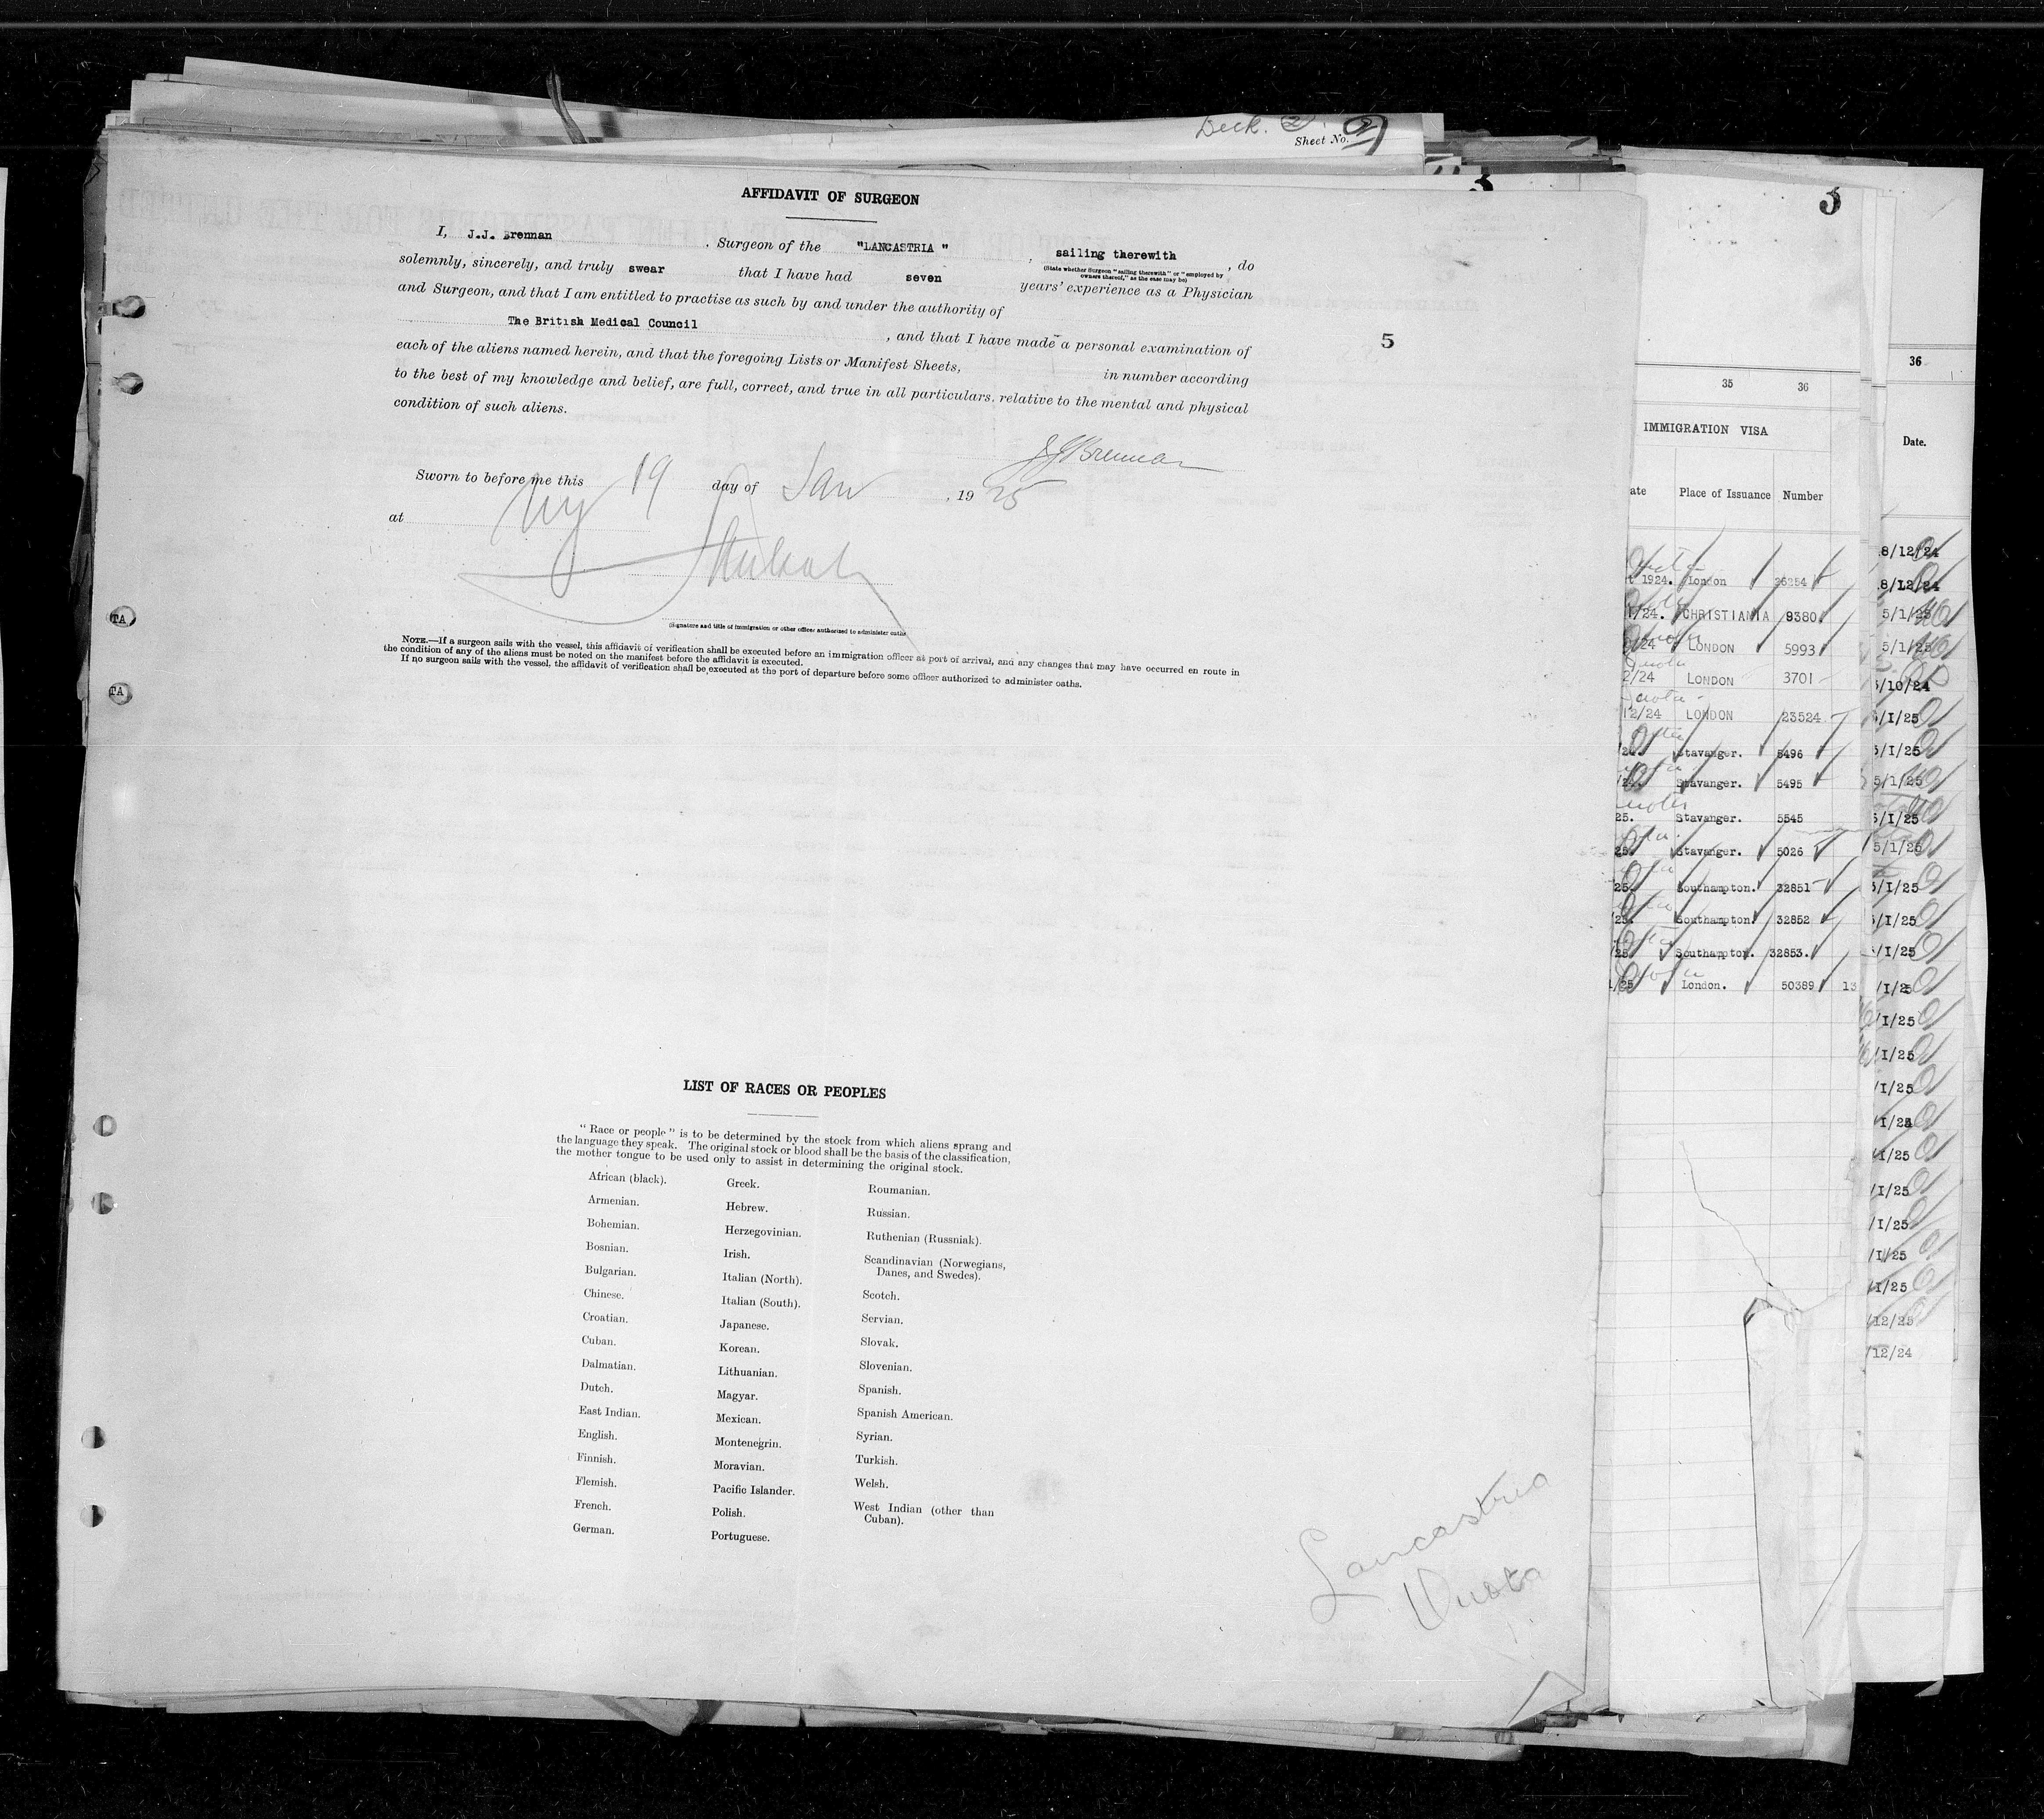 Deck. 2.
Sheet No. 2
3
AFFIDAVIT OF SURGEON
I, J.J. Brennan , Surgeon of the "LANCASTRIA" , sailing therewith , do
(State whether Surgeon "sailing therewith" or "employed by
owners thereof," as the case may be)
solemnly, sincerely, and truly swear that I have had seven years' experience as a Physician
and Surgeon, and that I am entitled to practise as such by and under the authority of
The British Medical Council , and that I have made a personal examination of
each of the aliens named herein, and that the foregoing Lists or Manifest Sheets, in number according
to the best of my knowledge and belief, are full, correct, and true in all particulars, relative to the mental and physical
condition of such aliens.
5
JJBrennan
Sworn to before me this 19 day of Jan , 19 25
at NY
(Signature and title of immigration or other officer authorized to administer oaths
NOTE.—If a surgeon sails with the vessel, this affidavit of verification shall be executed before an immigration officer at port of arrival, and any changes that may have occurred en route in
the condition of any of the aliens must be noted on the manifest before the affidavit is executed.
If no surgeon sails with the vessel, the affidavit of verification shall be executed at the port of departure before some officer authorized to administer oaths.
TA
TA
LIST OF RACES OR PEOPLES
"Race or people" is to be determined by the stock from which aliens sprang and
the language they speak. The original stock or blood shall be the basis of the classification,
the mother tongue to be used only to assist in determining the original stock.
African (black).
Armenian.
Bohemian.
Bosnian.
Bulgarian.
Chinese.
Croatian.
Cuban.
Dalmatian.
Dutch.
East Indian.
English.
Finnish.
Flemish.
French.
German.
Greek.
Hebrew.
Herzegovinian.
Irish.
Italian (North).
Italian (South).
Japanese.
Korean.
Lithuanian.
Magyar.
Mexican.
Montenegrin.
Moravian.
Pacific Islander.
Polish.
Portuguese.
Roumanian.
Russian.
Ruthenian (Russniak).
Scandinavian (Norwegians,
Danes, and Swedes).
Scotch.
Servian.
Slovak.
Slovenian.
Spanish.
Spanish American.
Syrian.
Turkish.
Welsh.
West Indian (other than
Cuban).
Lancastria
Quota
3
35 36
IMMIGRATION VISA
ate Place of Issuance Number
1924. London 26254
/24. CHRISTIANIA 9380
/24 LONDON 5993
2/24 LONDON 3701
12/24 LONDON 23524
Stavanger. 5496
Stavanger. 5495
25. Stavanger. 5545
25. Stavanger. 5026
25. Southampton. 32851
/25. Southampton. 32852
/25. Southampton. 32853.
/25 London. 50389 13
36
Date.
8/12/24
8/12/24
5/1/25
5/1/25
/10/24
/I/25
5/I/25
5/1/25
5/I/25
5/1/25
/I/25
/I/25
/I/25
/I/25
/I/25
/I/25
/I/25
/I/25
/I/25
/I/25
/I/25
/I/25
/I/25
/12/25
/12/24